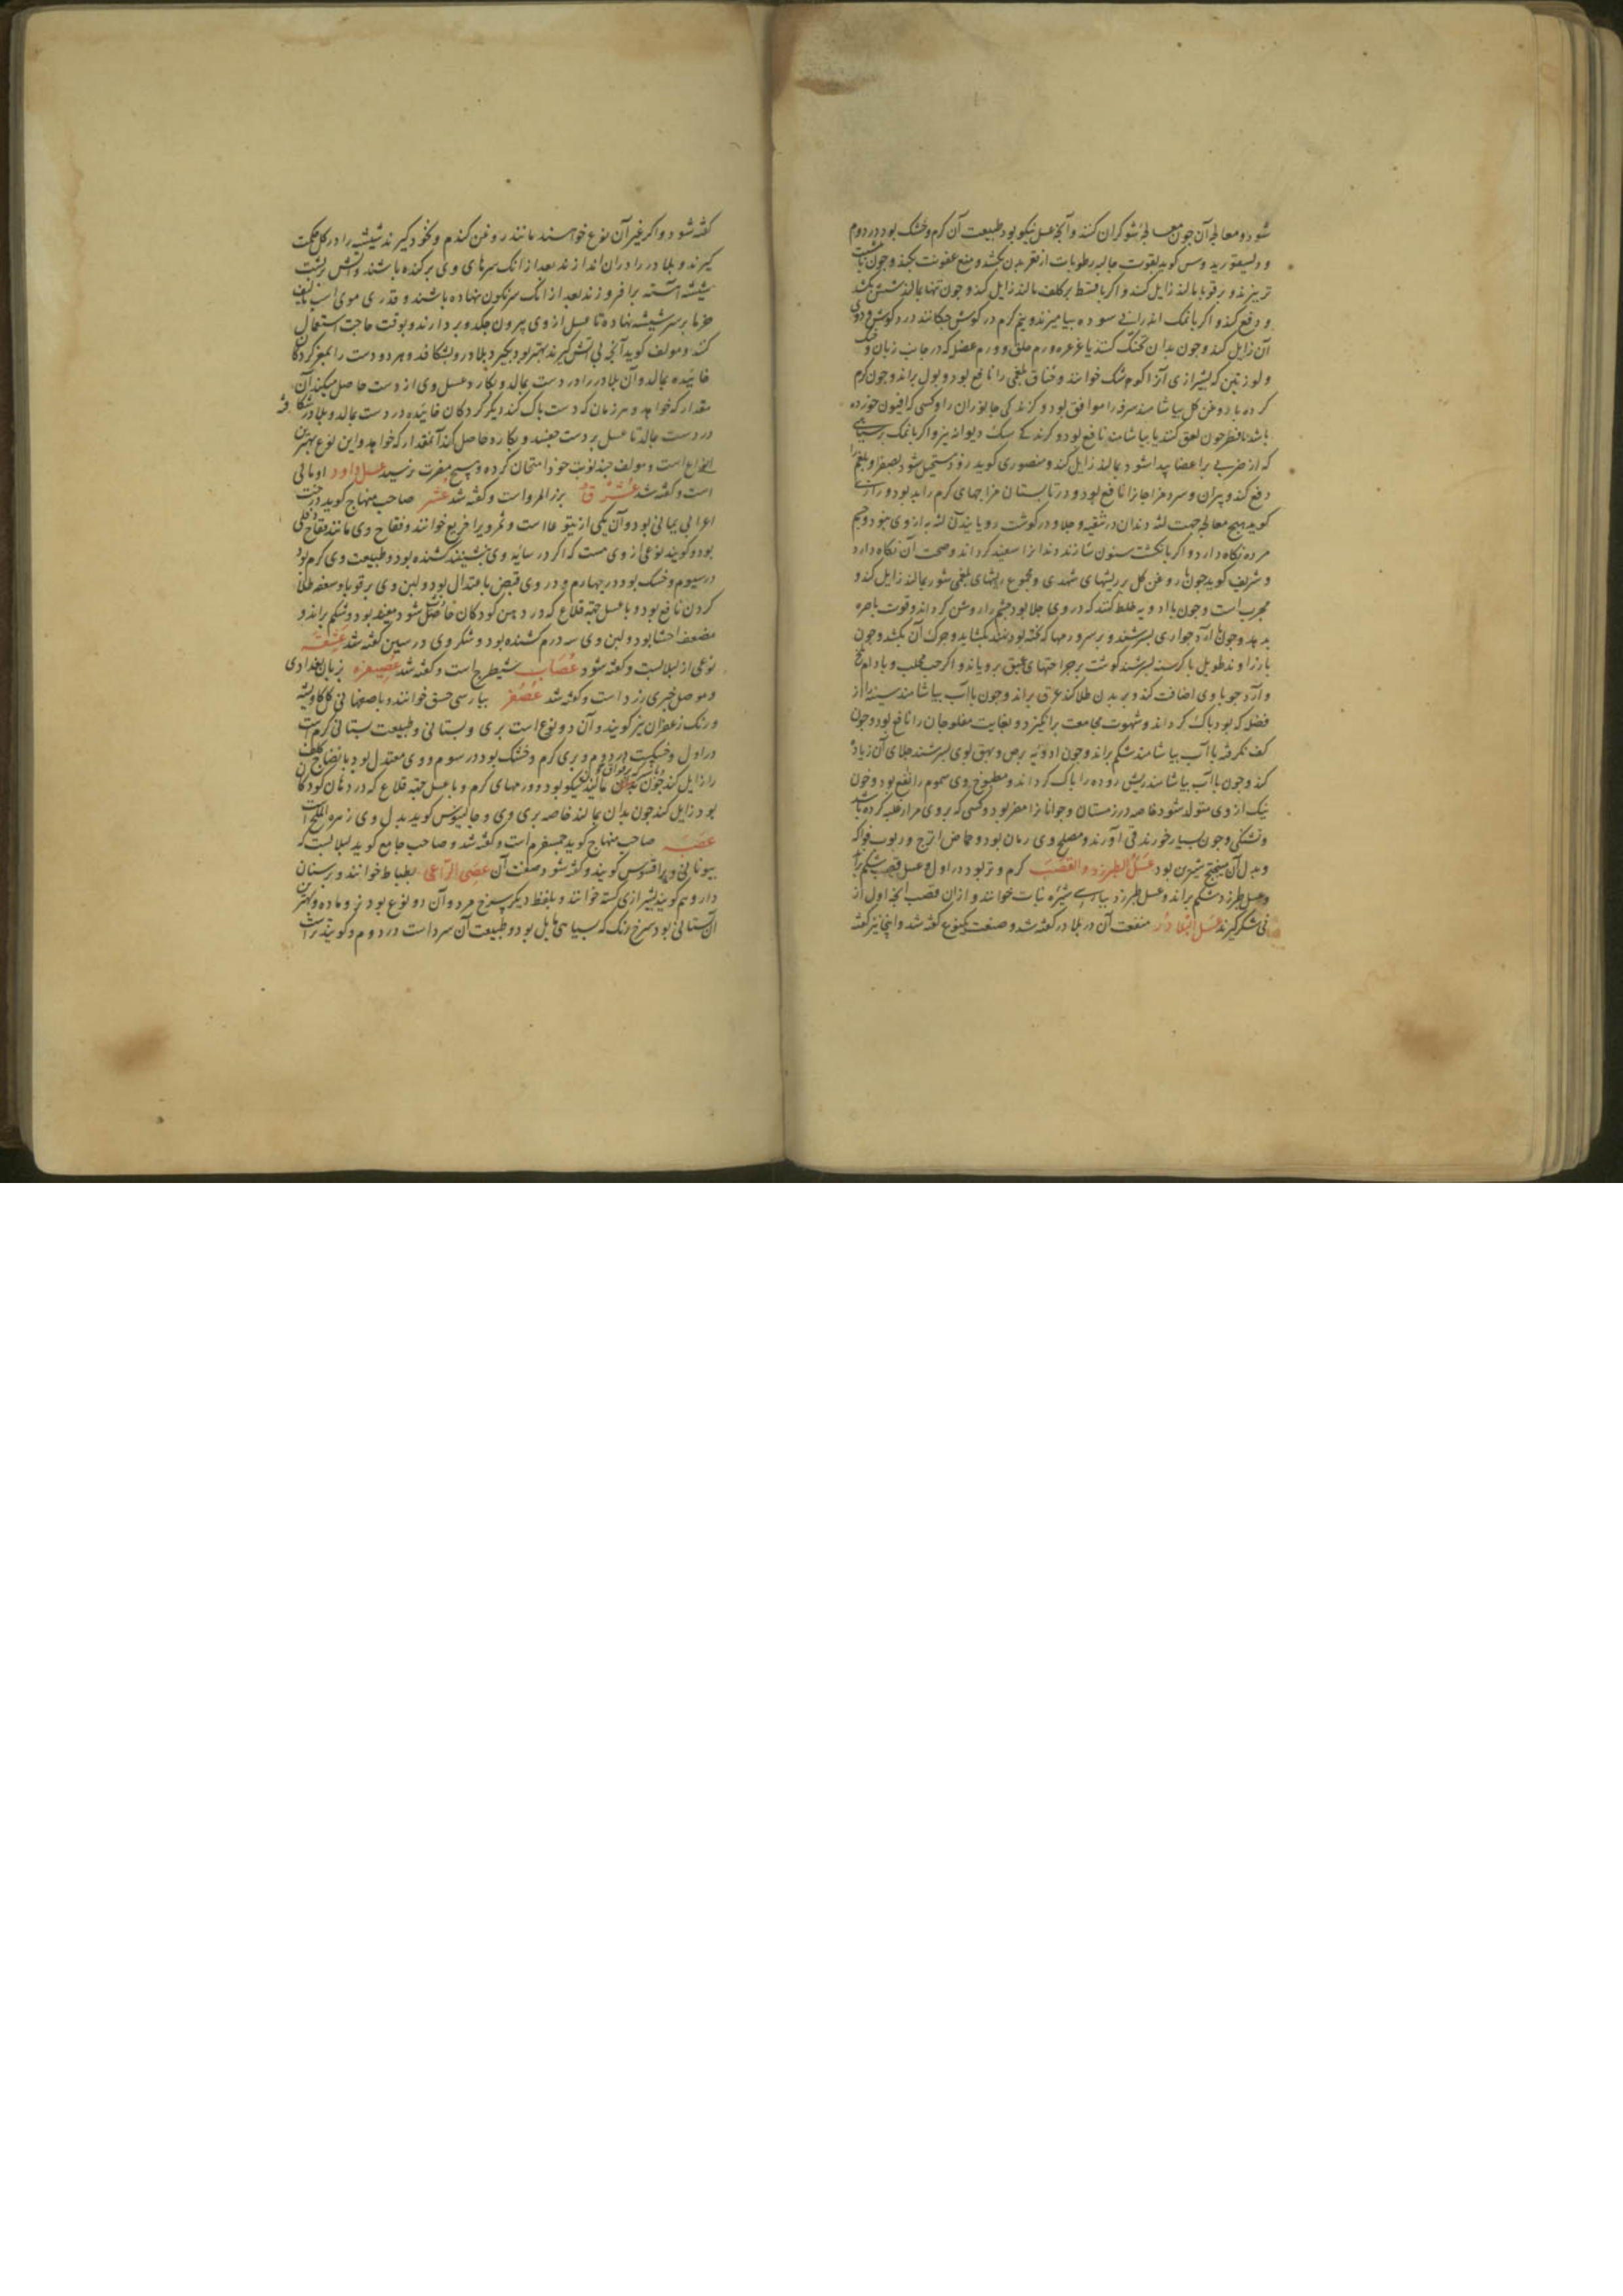 شود و معالجه آن چون معالجه شوکران کنند و آنچه عسل نیکو بود طبیعت آن کرم و خشک بود در دوم
و دیسقوریدوس کوید بقوت جالیه رطوبات از قعر بدن بکشد و منع عفونت بکند و چون باشب
تر بیزند و بر قوبا بمالند زایل کند و اکر با قسط بر کلف مالند زایل کند و چون تنها بمالند شپش بکشد
و دفع کند و اکر با نمک اندرانی سوده بیامیزند و نیم کرم در کوش چکانند درد کوش و دوی
آن زایل کند و چون بدان تحنک کنند یا غرغره ورم حلق و ورم عضل که در جانب زبان و حنک
و لوزتین که بشیرازی آنرا کوم شک خوانند و خناق بلغمی را نافع بود و بول براند و چون کرم
کرده با روغن کل بیاشامند سرفه را موافق بود و کزندکی جانوران را و کسی که افیون خورده
باشد یا فطر چون لعق کنند یا بیاشامند نافع بود و کزندکی سک دیوانه نیز و اکر با نمک بر سیاهی
که از ضربی بر اعضا پیدا شود بمالند زایل کند و منصوری کوید زود مستحیل شود بصفرا و بلغم را
دفع کند و پیران و سرد مزاجان را نافع بود و در تابستان مزاجهای کرم را بد بود و رازی
کوید هیچ معالجه جهت لثه و دندان در تنقیه و جلا و در کوشت رویانیدن لثه به از وی نبود و جسم
مرده نکاه دارد و اکر بانکشت سنون سازند دندانرا سفید کرداند و صحت آن نکاه دارد
و شریف کوید چون با روغن کل بر ریشهای شهدی و مجموع ریشهای بلغمی شور بمالند زایل کند و
مجرب است و چون با ادویه خلط کنند که در وی جلا بود چشم را روشن کرداند و قوت باصره
بدهد و چون با آرد حواری بسرشند و بر سر ورمها که نخته بود نهند بکشاید و چرک آن بکشد و چون
با زراوند طویل با کرسنه بسرشند کوشت بر جراحتهای عمیق برویاند و اکر حب محلب و بادام تلخ
و آرد جو با وی اضافت کند و بر بدن طلا کند عرق براند و چون با آب بیاشامند سینه را از
فضله که بود پاک کرداند و شهوت مجامعت برانکیزد و بغایت مفلوجان را نافع بود و چون
کف نکرفته با آب بیاشامند شکم براند و چون ادویه برص و بهق بوی بسرشند جلای آن زیاده
کند و چون با آب بیاشامند ریش روده را پاک کرداند و مطبوخ وی سموم را نافع بود و خون
نیک از وی متولد شود خاصه در زمستان و جوانانرا مضر بود و کسی که بر وی مرار غلبه کرده باشد
و تشنکی و چون بسیار خورند قی آورند و مصلح وی رمان بود و حماض اترج و ربوب فواکه
و بدل آن میبختج شیرین بود عسل الطبرزد و القصب کرم و تر بود در اول و عسل قصب شکم براند
و عسل طبرزد شکم براند و عسل طبرزد بپارسی شیره نبات خوانند و از آن قصب آنچه اول از
نی شکر کیرند عسل البلادر منفعت آن در بلادر کفته شد و صنعت یکنوع کفته شد و اینجا نیز کفته
کفته شود و اکر غیر آن نوع خواهند مانند روغن کندم و نخود کیرند شیشه را در کل حکمت
کیرند و بلادر را در آن اندازند بعد از آنک سرهای وی برکنده باشند و آتش بر پشت
شیشه آهسته برافروزند بعد از آنک سرنکون نهاده باشند و قدری موی اسب یا لیف
خرما بر سر شیشه نهاده تا عسل از وی بیرون چکد و بردارند و بوقت حاجت استعمال
کنند و مولف کوید آنچه بی آتش کیرند بهتر بود بکیرد بلادر و بشکافد و هر دو دست را بمغز کردکان
خائیده بمالد و آن بلادر را در دست بمالد و بکارد عسل وی از دست حاصل میکند آن
مقدار که خواهد و هر زمان که دست پاک کند دیکر کردکان خائیده در دست بمالد و بلادر شکافته
در دست بمالد تا عسل بر دست چسبد و بکارد حاصل کند آنمقدار که خواهد و این نوع بهترین
انواع است و مولف چند نوبت خود امتحان کرده و هیچ مضرت نرسید عسل داود اومالی
است و کفته شد عشرق بزر المرو است و کفته شد عشر صاحب منهاج کوید درخت
اعرابی یمانی بود و آن یکی از یتوعات است و ثمر ویرا خرفع خوانند و فقاح وی مانند فقاح دفلی
بود و کویند نوعی از وی هست که اکر در سایه وی بنشینند کشنده بود و طبیعت وی کرم بود
در سیوم و خشک بود در چهارم و در وی قبضی باعتدال بود و لبن وی بر قوبا و سعفه طلا
کردن نافع بود و با عسل جهة قلاع که در دهن کودکان حاصل شود مفید بود و شکم براند و
مضعف احشا بود و لبن وی سه درم کشنده بود و شکر وی در سین کفته شد عشقه
نوعی از لبلابست و کفته شود عصاب شیطرج است و کفته شد عصیفره بزبان بغدادی
و موصل خیری زرد است و کفته شد عصفر بپارسی خسق خوانند و باصفهانی کل کاویشه
و رنک زعفران نیز کویند و آن دو نوع است بری و بستانی و طبیعت بستانی کرم است
در اول و خشکست در دوم و بری کرم و خشک بود در سوم و وی معتدل بود بانضاج کلف
را زایل کند چون بدان مالند نیکو بود و ورمهای کرم و با عسل جهة قلاع که در دهان کودکان
بود زایل کند چون بدان بمالند خاصه بری وی و جالینوس کوید بدل وی زهره الملح است
عصبه صاحب منهاج کوید جمسفرم است و کفته شد و صاحب جامع کوید لبلابست که
بیونانی ویرا قسوس کویند و کفته شود صفت آن عصی الراعی بطباط خوانند و برسنان
دارو هم کویند بشیرازی کسته خوانند و بلفظ دیکر سرخ مرد و آن دو نوع بود نر و ماده و بهترین
آن بستانی بود سرخ رنک که بسیاهی مایل بود و طبیعت آن سرد است در دوم و کویند تر است